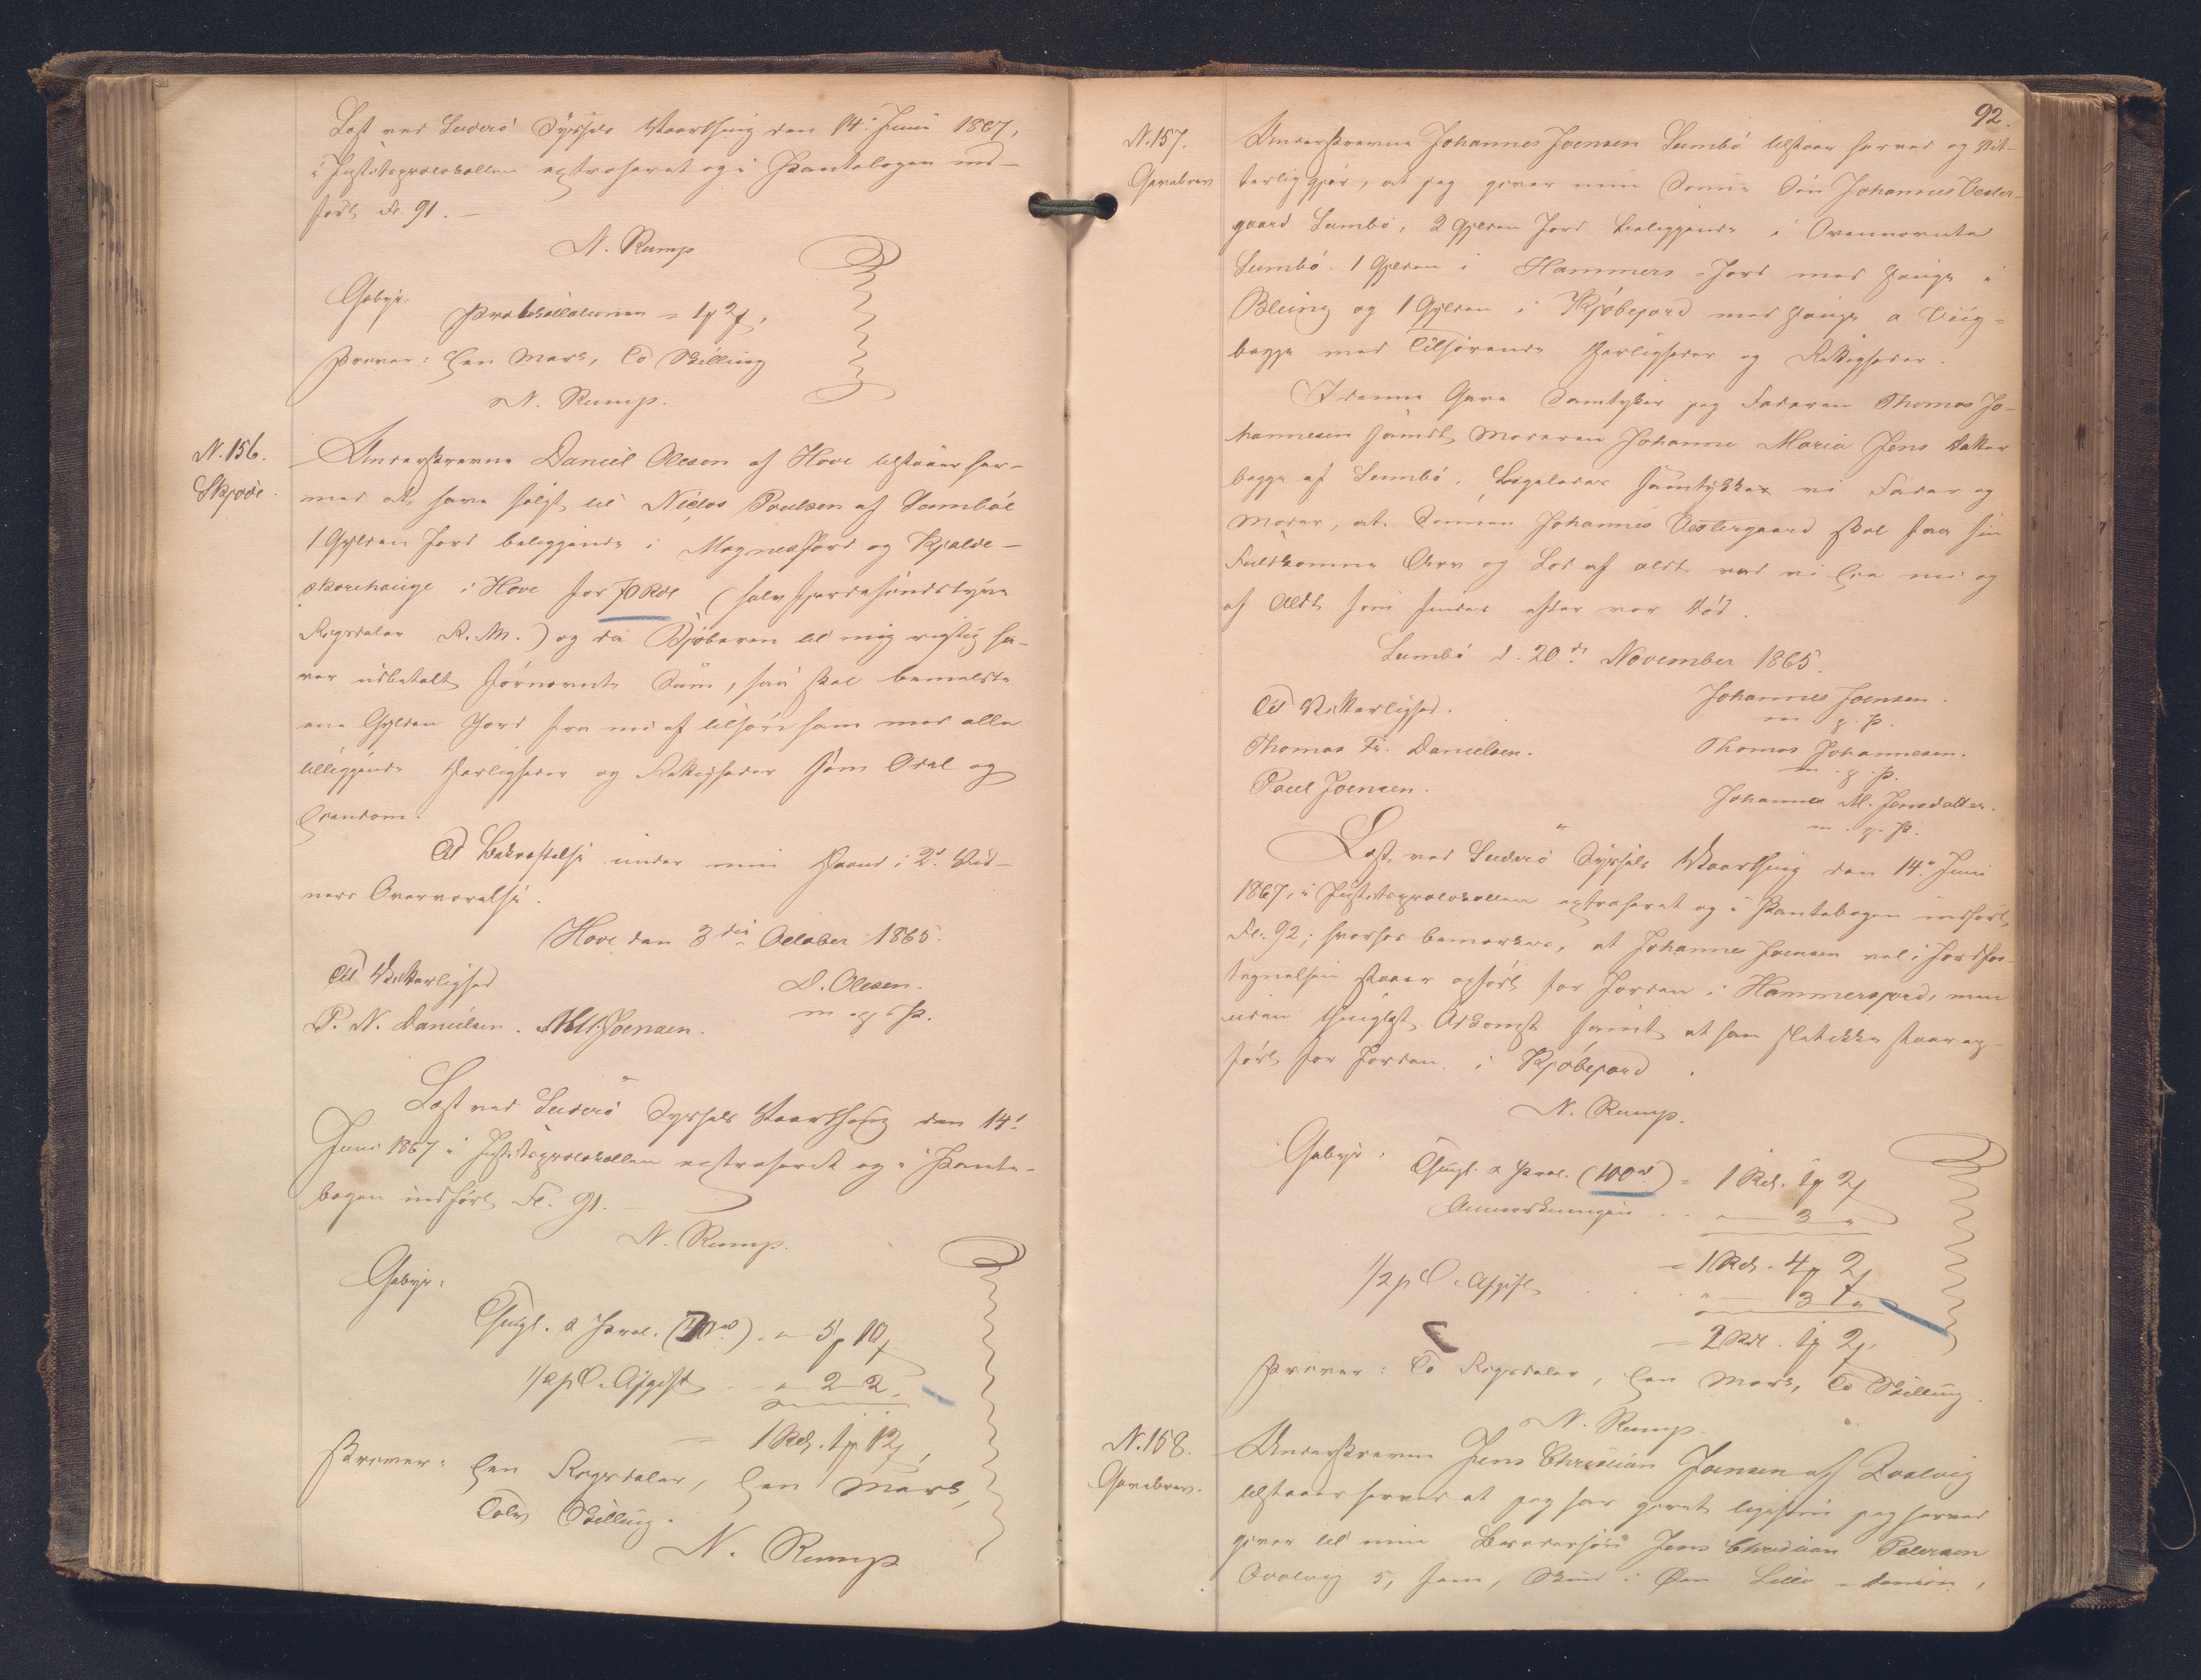 Læst ved Suderö Syssels Vaarthing den 14de Juni 1867,
i Justitsprotokollen extraheret og i Pantebogen ind-
ført Fo. 91. —
N. Rump
Gebyr.
Protokollationen = 1 2
skriver: Een Mark, To Skilling
N. Rump.
N. 156.
Skjøde.
Underskrevne Daniel Olesen af Hove tilstaaer her-
med at have solgt til Niclos Poulsen af Samböe
1 Gylden Jord beliggende i Magnesjord og Kjalde-
skorehauge i Hove for 70 Rdl (halv fjerdesindstyve
Rigsdaler R.M.) og da Kjøberen til mig rigtig ha-
ver udbetalt fornævnte Sum, saa skal bemeldte
ene Gylden Jord fra mig af tilhøre ham med alle
tilliggende Herligheder og Rettigheder som Odel og
Eiendom.
Til Bekræftelse under min Haand i 2de Vid-
ners Overværelse.
Hove den 3die October 1865.
Til Vitterlighed
D. Olesen.
m. p. P.
P. N. Danielsen. Joensen.
Læst ved Suderö Syssels Vaarthing den 14'
Juni 1867 i Justitsprotokollen extraheret og i Pante-
bogen indført Fo. 91.
N. Rump.
Gebyr:
Thingl. & Prot. (70rd) - " 5 10
1/2 p C. Afgift - " 2 2
= 1 Rd. 1 12
skriver: Een Rigsdaler, Een Mark,
Tolv Skilling.
N. Rump
92.
N. 157.
Gavebrev
Underskrevne Johannes Joensen Sumbö tilstaar herved og vit-
terliggjør, at jeg giver min Sønne Søn Johannes Vester-
gaard Sumbö, 2 Gylden Jord beliggende i Ovennævnte
Sumbö. 1 Gylden i Hammers-Jord med Hauge i
Bleing og 1 Gylden i Kjøbejord med Hauge a Viig-
begge med Tilhørende Herligheder og Rettigheder.
I denne Gave Samtykker jeg Faderen Thomas Jo-
hannesen samt Moderen Johanne Maria Jens Datter
begge af Sumbö. Ligeledes samtykker vi Fader og
Moder, at Sønnen Johannes Vestergaard skal faa sin
Fuldkomne Arv og Lod af aldt vad vi Eie nu og
af Aldt som findes efter vor Død.
Sumbö d. 20de November 1865.
Til Vitterlighed.
Johannes Joensen.
m. p. P.
Thomas Fr. Danielsen.
Thomas Johannesen.
m. p. P.
Poul Joensen.
Johanne M. Jensdatter.
m. p. P.
Læst ved Suderö Syssels Vaarthing den 14de Juni
1867, i Justitsprotokollen extraheret og i Pantebogen indført
Fo. 92; hvorhos bemærkes, at Johannes Joensen vel i Jordfor-
tegnelsen staaer opført for Jorden i Hammersjord, men
uden thinglæst Adkomst samt at han slet ikke staar op-
ført for Jorden i Kjøbejord.
N. Rump.
Gebyr:
Thingl. & Prot. (100rd) = 1 Rd. 1 2
Anmærkningen - " 3 "
= 1 Rd. 4 2
1/2 p C. Afgift " 3 "
= 2 Rdl. 1 2
skriver: To Rigsdaler, Een Mark, To Skilling.
N. Rump.
N. 158.
Gavebrev.
Underskrevne Jens Christian Joensen af Qvalvig
tilstaaer herved at jeg har givet ligesom jeg herved
giver til min Brodersøn Jens Christian Petersen
Qvalvig 5, fem, Skind i Øen Lille-Dimön,